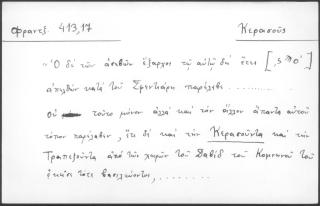 Φραντζ. 413,17 Κερασοῦς
"Ὁ δὲ τῶν ἀσεβῶν ἔξαρχος τῷ αὐτῷ δὴ ἔτει
ἀπελθὼν κατὰ τοῦ παρέλαβε........
οὐ τοῦτο μόνον ἀλλὰ καὶ τὸν ἄλλον ἅπαντα αὐτοῦ
τόπον παρέλαβεν, ἔτι δὲ καὶ τὴν Κερασοῦντα καὶ τὴν
Τραπεζοῦντα ἀπὸ τῶν χειρῶν τοῦ Δαβὶδ τοῦ Κομνηνοῦ τοῦ
ἐκεῖσε τότε βασιλεύοντος,.........